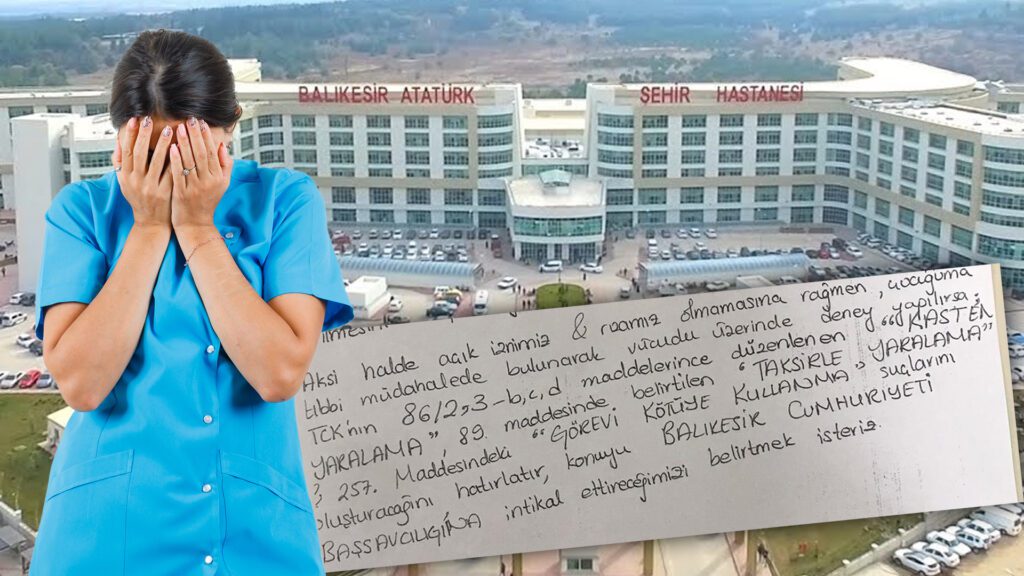 BALIKESİR ATATÜRK ŞEHİR HASTANESİ
Aksi halde açık iznimiz & rızamız olmamasına rağmen, çocuğuma
tıbbi müdahalede bulunarak vücudu üzerinde deney yapılırsa
TCK'nın 86/2,3-b,c,d maddelerince düzenlenen "KASTEN
YARALAMA", 89. maddesinde belirtilen "TAKSİRLE YARALAMA"
, 257. Maddesindeki "GÖREVİ KÖTÜYE KULLANMA" suçlarını
oluşturacağını hatırlatır, konuyu BALIKESİR CUMHURİYETİ
BAŞSAVCILIĞINA intikal ettireceğimizi belirtmek isteriz.